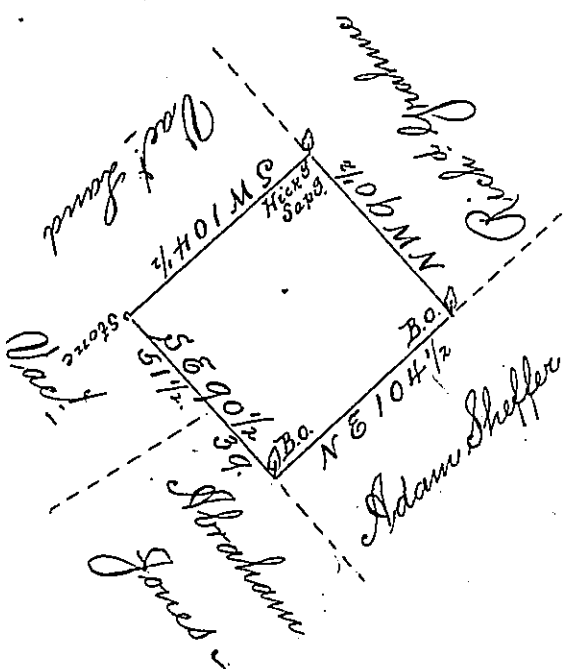 Vact. Land
Rich'd. Grahme
S W 104½
Hicky
Sapg.
N W 90½
B.O.
Stone
Vact.
S E 90½
51½.
39.
B.O.
N E 104½
Adam Sheffer
Abraham
Jones.